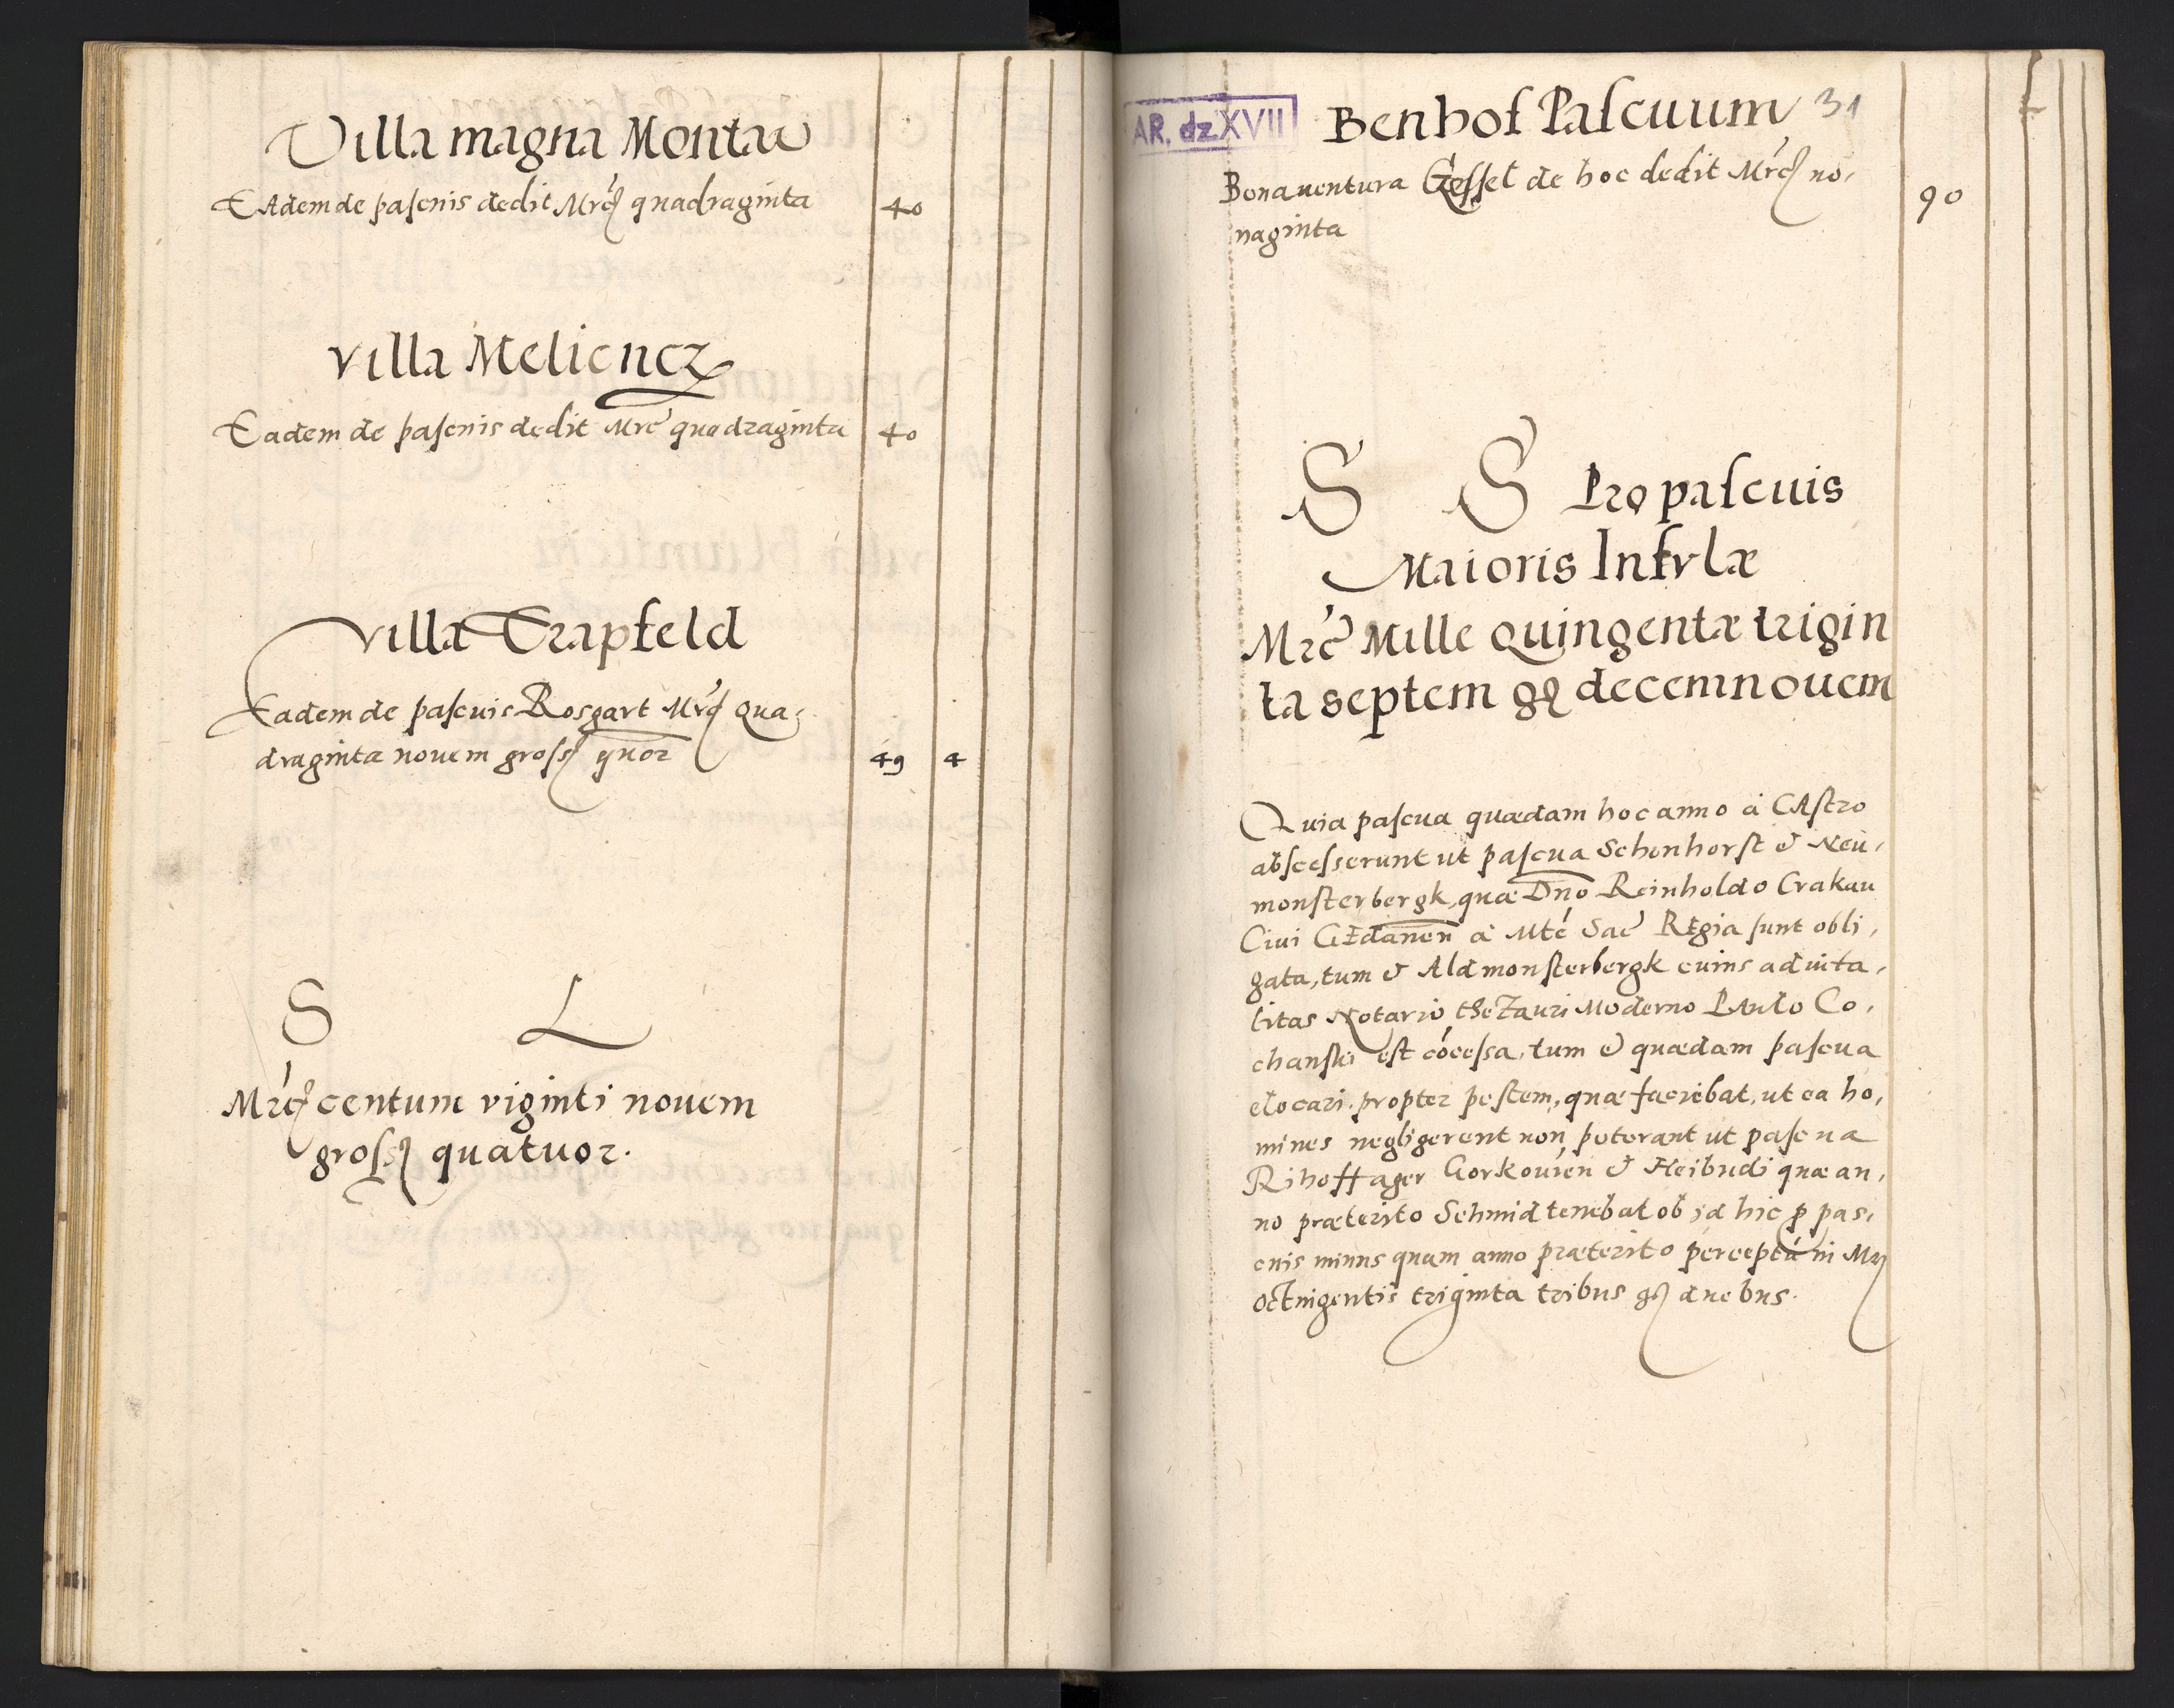 Villa magna Montau
EAdem de pascuis dedit Mrc quadraginta 40
villa Meliencz
Eadem de pascuis dedit Mrc quadraginta 40
villa Trapfeld
Eadem de pascuis Rosgart Mrc Qua,
draginta nouem gross quor 49 4
S L
Mrc centum viginti nouem
gross quatuor.
AR. dz XVII
Benhof Pascuum 31
Bonauentura Gessel de hoc dedit Mrc no, 90
naginta
S S Pro pascuis
Maioris Insvlæ
Mrc Mille Quingentæ trigin
ta septem g decemnouem
Quia pascua quædam hoc anno à CAstro
abscesserunt ut pascua Schonhorst & Neu,
monsterbergk, quæ Dno Reinholdo Crakau
Ciui GEdanen à Mte Sac Regia sunt obli,
gata, tum & Aldmonsterbergk cuius aduita,
litas Notario theZauri Moderno PAulo Co,
chanski est cocessa, tum & quædam pascua
elocari. propter pestem, quæ sæuiebat, ut ea ho,
mines negligerent non poterant ut pascua
Rihoff ager Gorkouien & Heibudi quæ an,
no præterito Schmid tenebat ob id hic p pas,
cuis minus quam anno præterito perceptu in Mr
octuigentis triginta tribus g duebus.